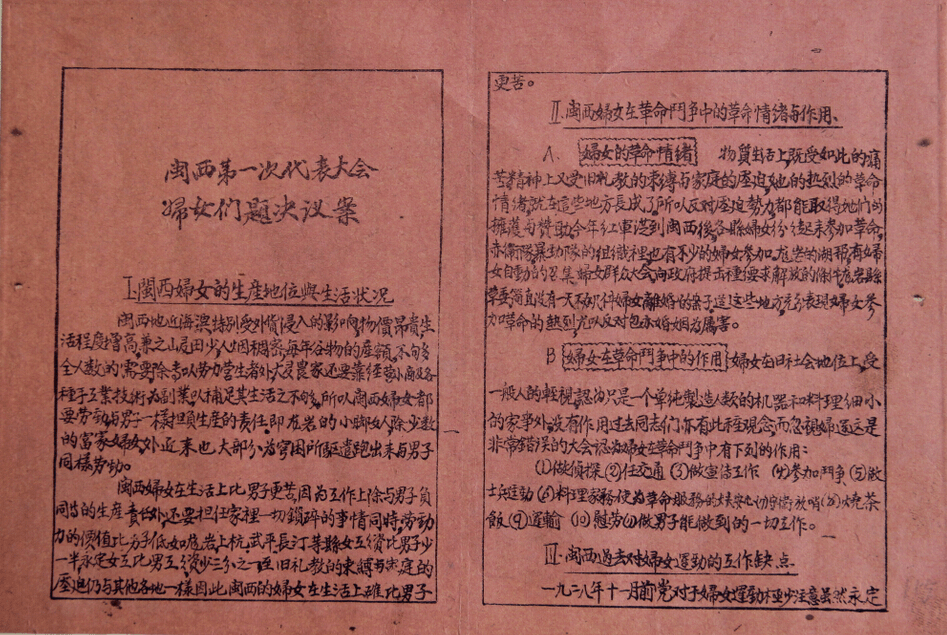 闽西第一次代表大会
婦女们題决议案
I.闽西婦女的生産地位與生活状况
闽西地近海濱特别受外货侵入的影响,物價昂貴生
活程度增高,兼之山居田少人烟稠密,每年谷物的産額,不句多
全人数的需要除 以劳力营生者外大 家还要靠经营小商及各
種手工業技術为副業以補足其生活之不句,所以闽西婦女都
要劳动与男子一樣担負生産的責任即 岩的小脚女人除少数
的富家婦女外近来也大部分为穷困所驅遣跑出来与男子
同樣劳动。
闽西婦女在生活上比男子更苦因为工作上除与男子負
同等的生産責任外,还要担任家裡一切鎖碎的事情同時,劳動
力的價值比男子低如 岩上杭,武平,長汀等縣女工资比男子少
一半,永定女工比男工资少三分之一 旧礼教的束縛与家庭的
壓迫仍与其他各地一樣因此闽西的婦女在生活上 比男子
更苦。
II.闽西婦女在革命鬥争中的革命情緒与作用、
A、婦女的革命情緒 物質生活上,既受如此的痛
苦精神上又受旧礼教的束縛与家庭的壓迫,她的热烈的革命
情緒,就在這些地方長成了,所以反对壓迫势力都能取得她们的
擁護与賛助今年红軍 到闽西後,各縣婦女份 起来参加革命,
赤衛隊暴动隊的组織裡,也有不少的婦女参加, 岩的湖邦,有婦
女自動的召集婦女群众大会,向政府提出種 要求解放的條件, 岩縣
革委简直没有一天不 几件婦女離婚的案子,這些地方充分表現婦女参
加革命的熱烈尤以反对包办婚姻为厲害。
B 婦女在革命鬥争中的作用 婦女在旧社会地位上,受
一般人的輕視,認为只是一个单純製造人数的机器和料理细小
的家事外,没有作用,过去同志们亦有此種观念,而忽視婦運這是
非常錯误的大会認为婦女在革命鬥争中有下列的作用:
(1)做侦探(2)任交通(3)做宣传工作(4)参加鬥争(5)做
士兵運動(6)料理家務使为革命服務的 安心(7)守衛放哨(8)燒茶
飯(9)運輸(10)慰劳(11)做男子能做到的一切工作。
III.闽西过去对婦女運動的工作缺点
一九二八年十一月前党对于婦女運動極少注意虽然永定